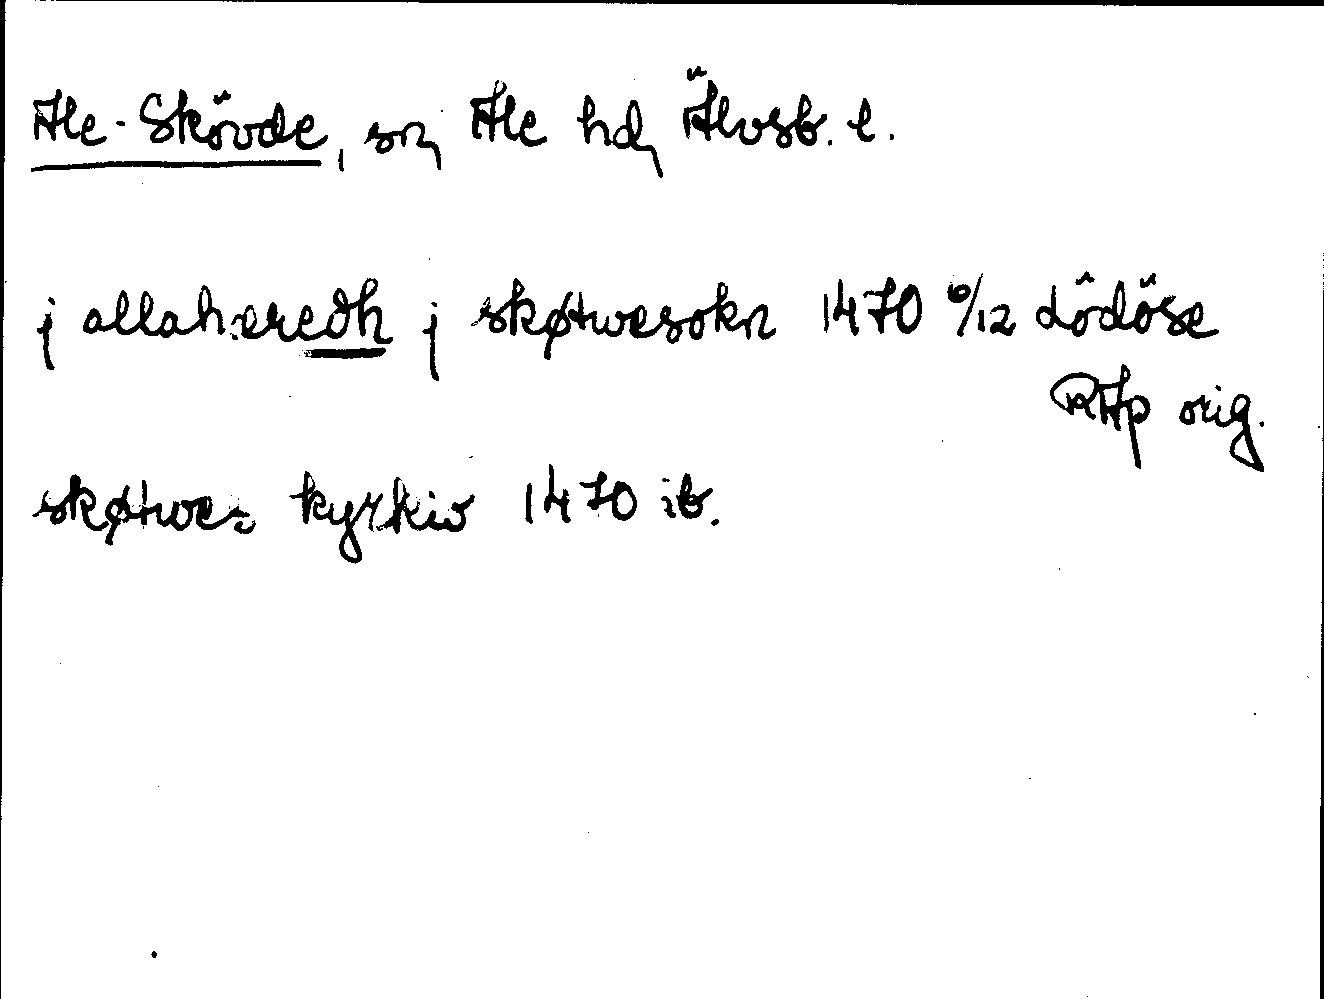 Ale-Skövde, sn, Ale hd, Älvsb. l.
j allahæredh j skøtwesokn 1470 6/12 Lödöse
RAp orig.
skøtwe= kyrkio 1470 ib.